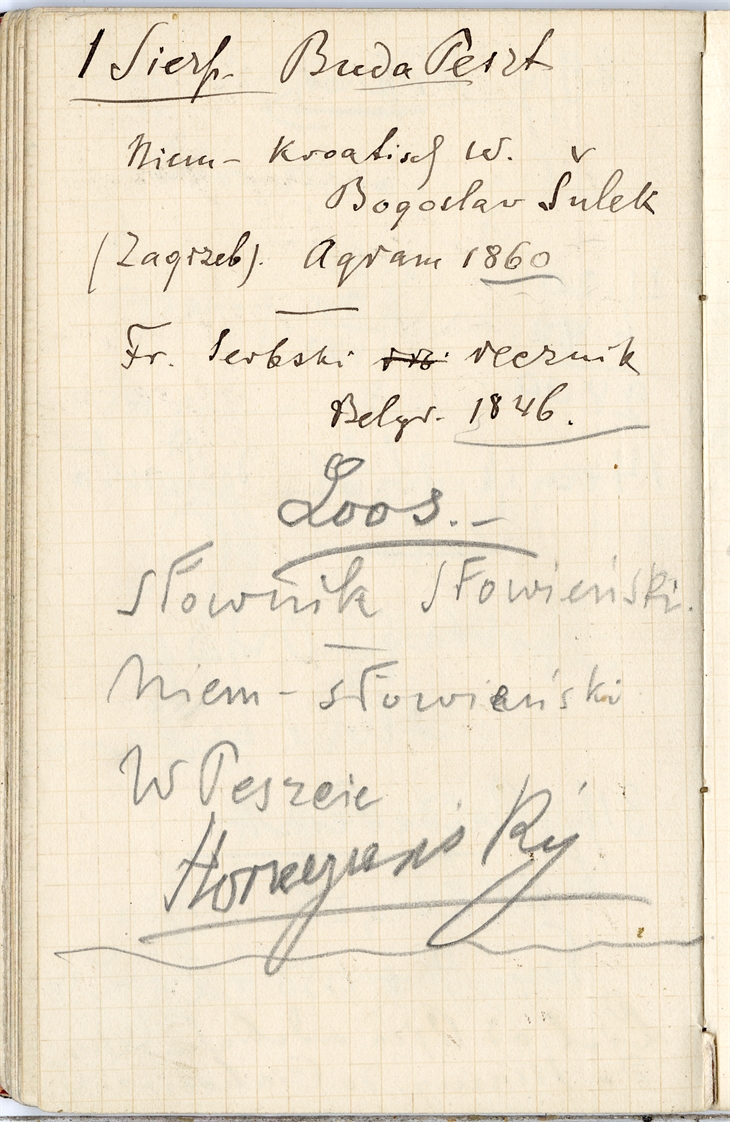 1 Sierp. BudaPeszt
Niem- Kroatisch W.
Bogoslav Šulek
(Zagrzeb). Agram 1860
Fr. Serbski reeznik
Belgr. 1846.
Loos.-
Słownik Słowieński.
Niem- słowieński
W Peszcie